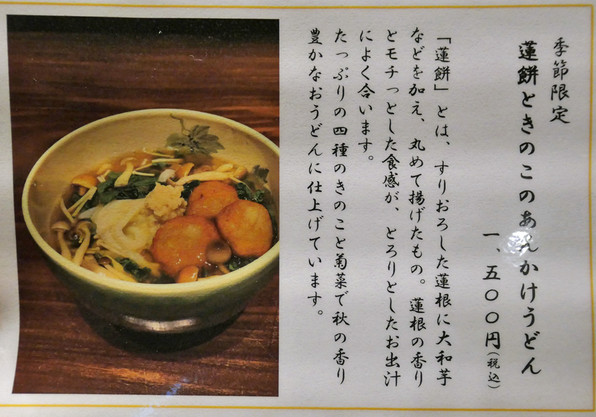 季節限定
蓮餅ときのこのあんかけうどん
一、五〇〇円(税込)
「蓮餅」とは、すりおろした蓮根に大和芋
などを加え、丸めて揚げたもの。蓮根の香り
とモチっとした食感が、とろりとしたお出汁
によく合います。
たっぷりの四種のきのこと菊菜で秋の香り
豊かなおうどんに仕上げています。